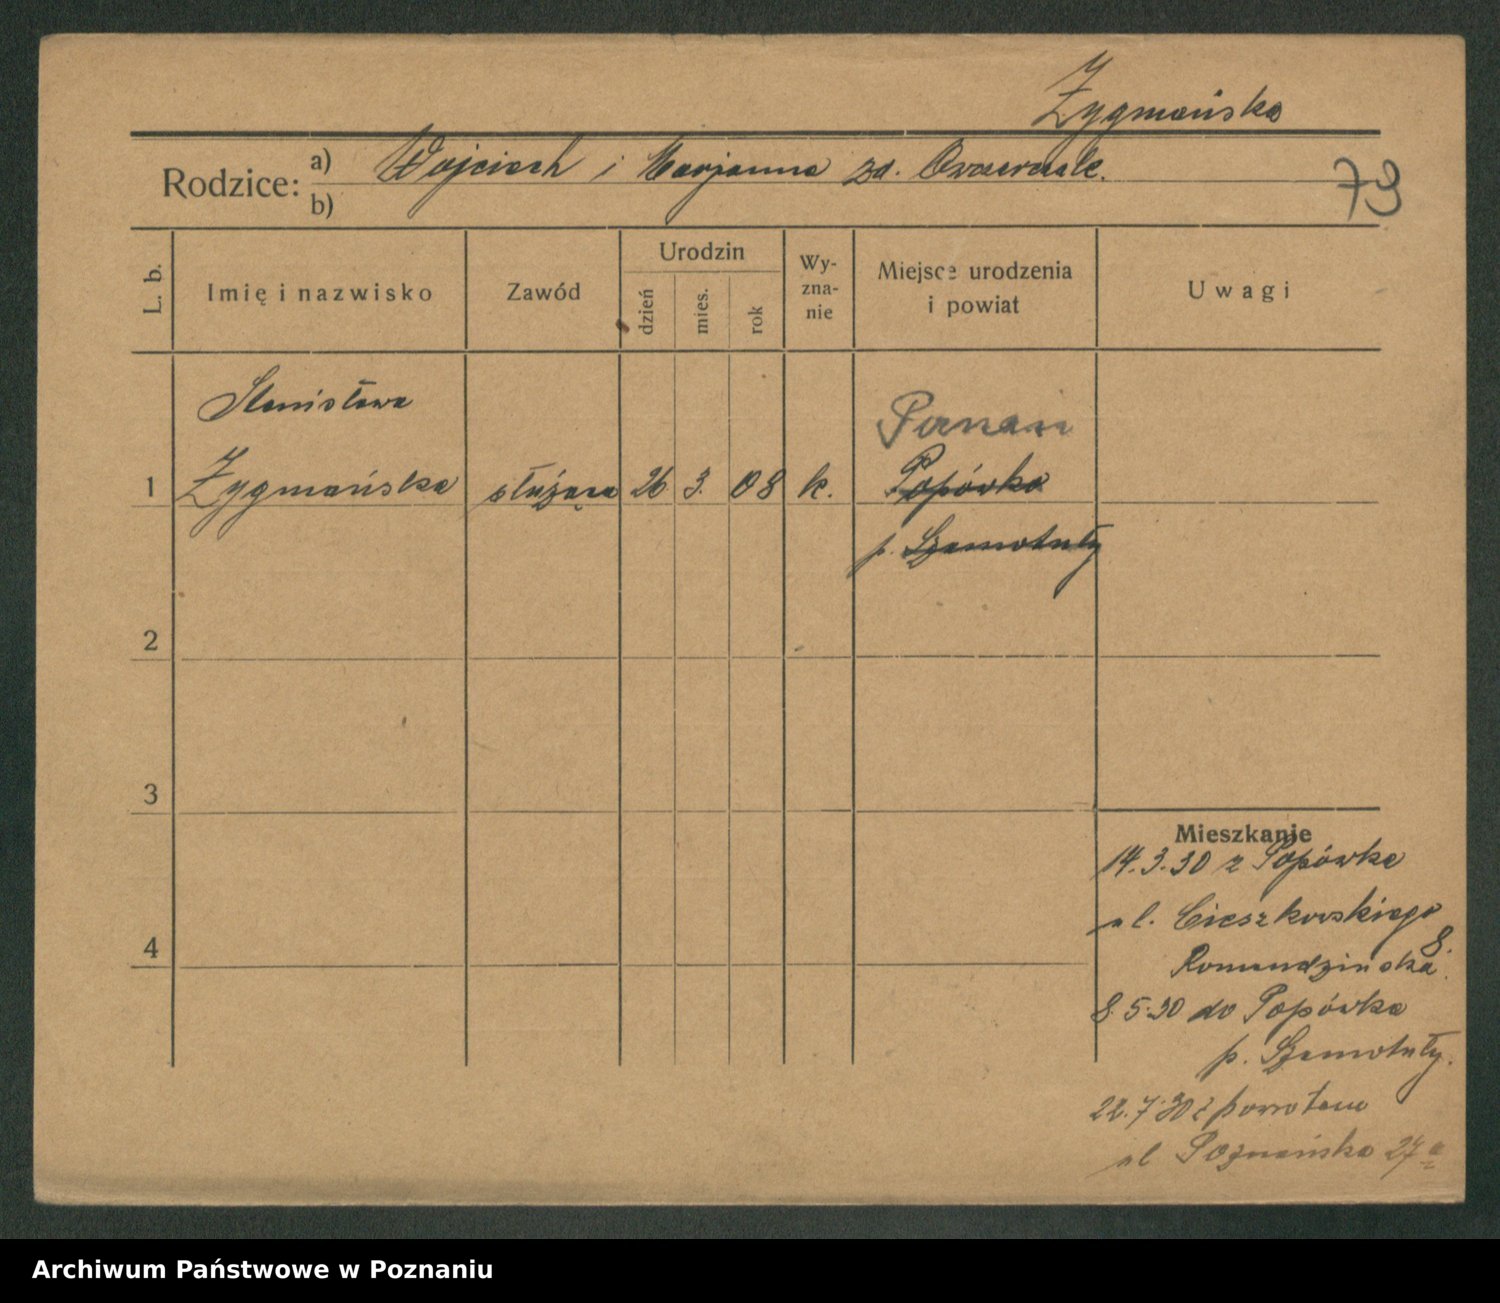 Zygmańska
Rodzice: a) Wojciech i Marjanna zd.
b)
79
L. b.
Imię i nazwisko
Zawód
Urodzin
dzień
mies.
rok
Wy-
zna-
nie
Miejsce urodzenia
i powiat
Uwagi
Stanisława
Poznań
1 Zygmańska służąca 26 3. 08 k. Popówko
p. Szamotuły
2
3
4
Mieszkanie
14.3.30 z Popówka
ul. Cieszkowskiego
8.
8.5.30 do Popówka
p. Szamotuły.
22.7.30 z powrotem
ul Poznańska 27a
Archiwum Państwowe w Poznaniu